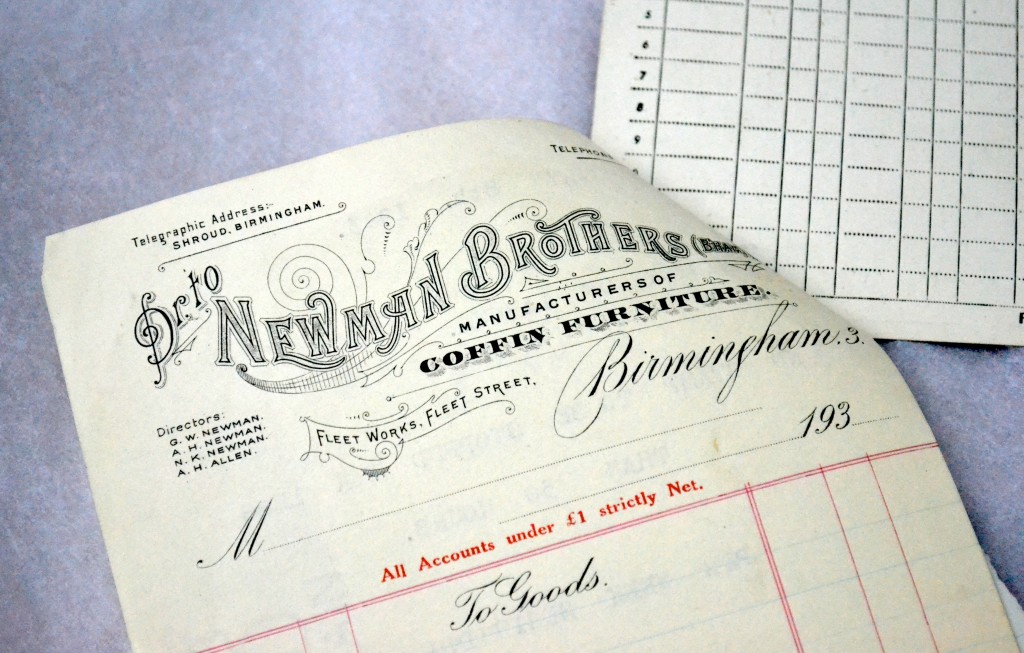 5
6
7
8
9
Telegraphic Address:-
SHROUD, BIRMINGHAM.
Dr. to
NEWMAN BROTHERS
MANUFACTURERS OF
COFFIN FURNITURE.
Birmingham. 3.
FLEET WORKS, FLEET STREET,
Directors:
G. W. NEWMAN.
A. H. NEWMAN.
N. K. NEWMAN.
A. H. ALLEN.
193
M
All Accounts under £1 strictly Net.
To Goods.